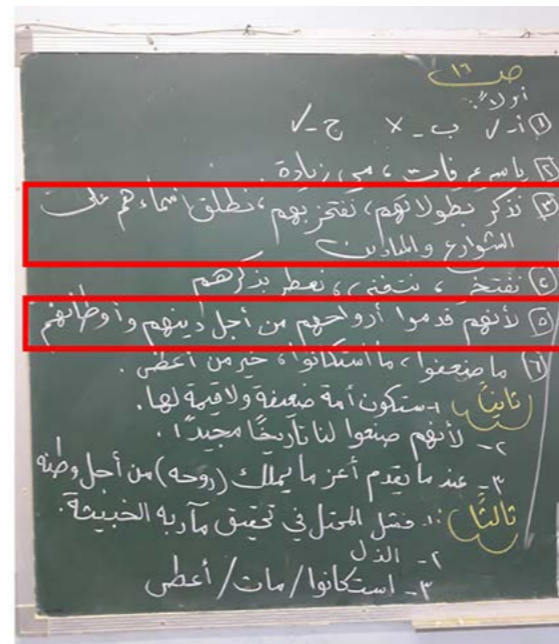 ص ١٦
أولاً:
١ أ- ✓ ب- × ج- ✓
٢ ياسر عرفات، مي زيادة.
٣ نذكر بطولاتهم، نفتخر بهم، نطلق أسماءهم على
الشوارع والميادين
٤ نفتخر، نتغنى، نعطر بذكرهم
٥ لأنهم قدموا أرواحهم من أجل دينهم وأوطانهم
٦ ما ضعفوا، ما استكانوا، خير من أعطى.
ثانياً ١- ستكون أمة ضعيفة ولا قيمة لها.
٢- لأنهم صنعوا لنا تاريخاً مجيداً.
٣- عندما يقدم أعز ما يملك (روحه) من أجل وطنه
ثالثاً: ١- فشل المحتل في تحقيق مآربه الخبيثة.
٢- الذل
٣- استكانوا / مات / أعطى